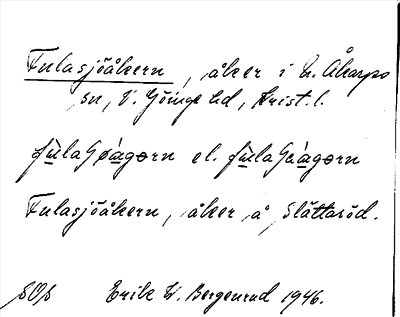 Fulasjöåkern, åker i N. Åkarps
sn, V. Göinge hd, Krist. l.
el.
Fulasjöåkern, åker å Slättaröd.
SOS Erik W. Bergenrud 1946.